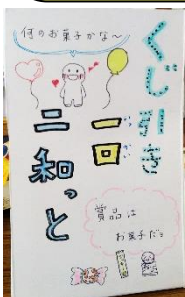 何のお菓子かな～
くじ引き
一回
二和っと
賞品は
お菓子だよ